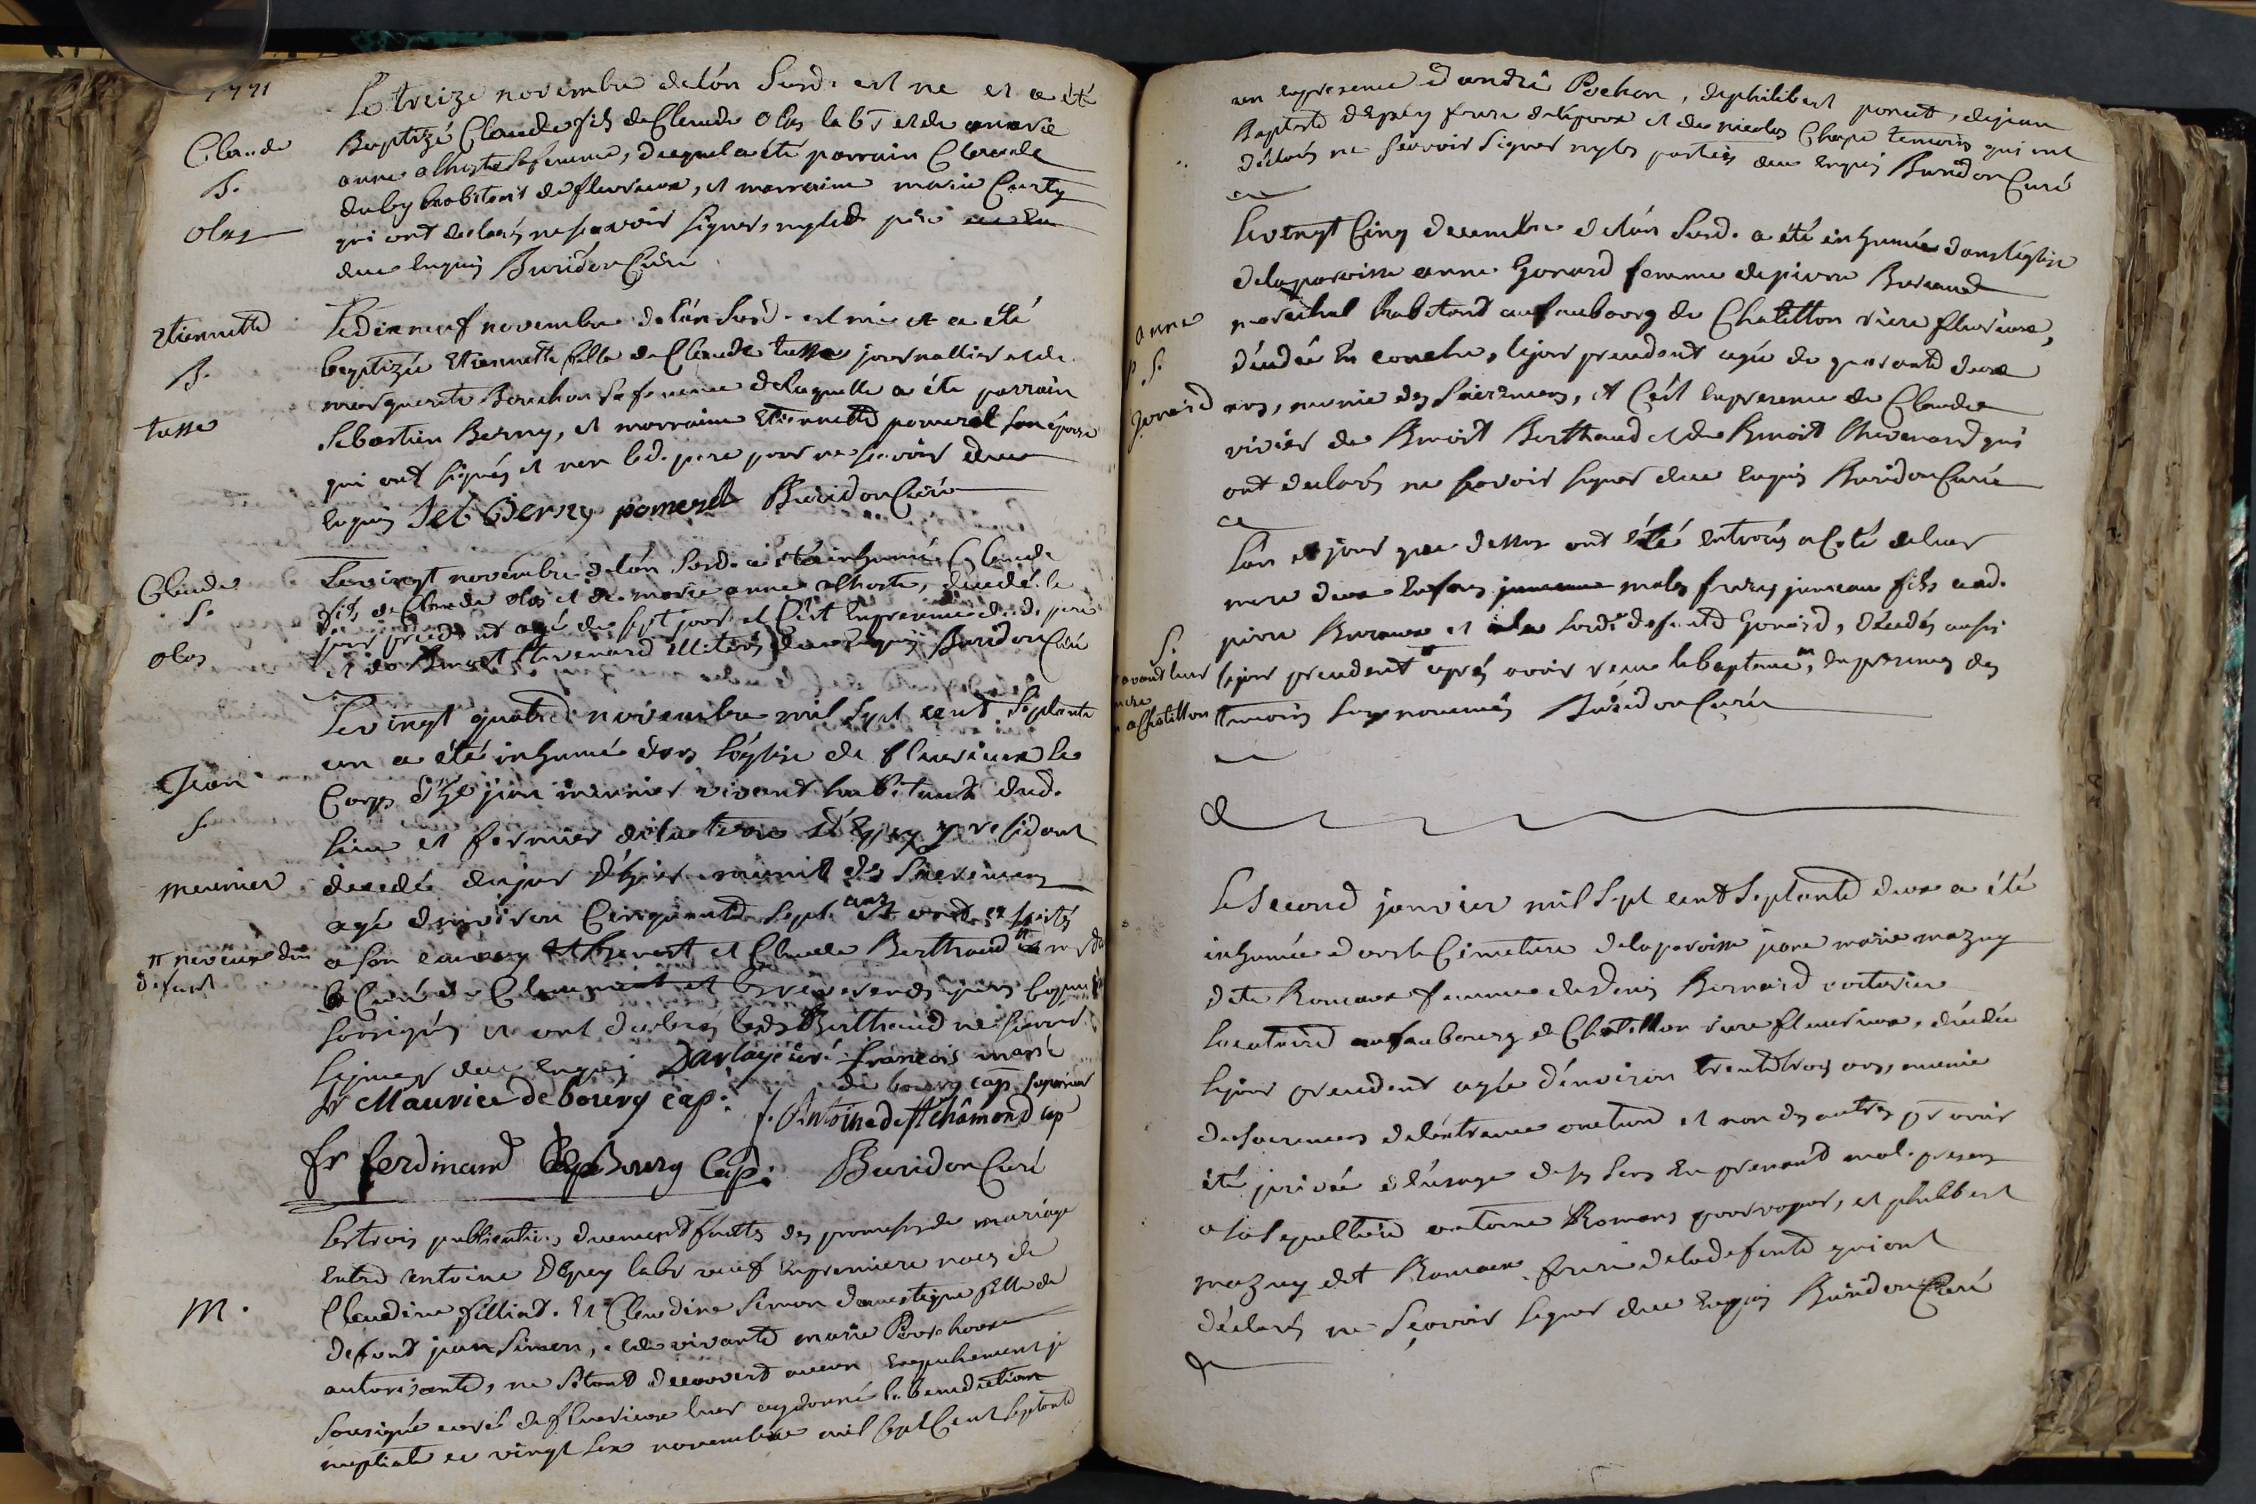 1771
Le treize novembre de lán susd. est né et a été
Claude
Baptizé Claude fils de Claude Olas labr et de marie
anne alhoste sa femme, duquel a été parrain Claude
B.
duby habitant de fleurieux, et marraine marie Curty
Olas
qui ont declarés ne scavoir signer, ny led. père
duu enquis Buridon Curé
Etiennette
Le dixneuf novembre de lán susd. est née et a été
B.
baptizée Etiennette fille de Claude tusse journallier et de
marguerite Bouchou sa femme de laquelle a été parrain
tusse
Sebastien Berny, et marraine Etiennette pomerel son épouse
qui ont signés et non led. pere pour ne scavoir duu
enquis Seb Berny pomerel Buridon Curé
Claude
Le vingt novembre de lán susd. a été inhumé Claude
S.
fils de Claude olas et de marie anne alhoste, decedé le
jour precedent agé de sept jours et C'est en presence dud. pere
olas
et de Benoit thevenard illiterés duu enquis Buridon Curé
Le vingt quatre novembre mil sept cent septante
un a été inhumé dans l'église de fleurieux le
Jean
Corps d'h. jean meunier vivant habitant dud.
S.
lieu et fermier de la terre d'Epey y residant
meunier
decedé du jour d'hier munit des sacremens
agé d'environ Cinquante sept ans
neveux du
defunt
a son et Claude Berthaud
Curé de reverends peres
sousignés et ont declarés led. Berthaud ne scavoir
signer duu enquis Darlay curé françois marie
de bourg cap. superieur
fr Maurice de bourg cap: f. Antoine de st châmond cap
fr ferdinand de Bourg Cap: Buridon Curé
Les trois publications duement faittes des promesses de mariage
Entre Antoine D'Epey labr veuf en premiere noces de
M.
Claudine filliat. Et Claudine Simon domestique fille de
defunt jean Simon, et de vivante marie
autorisante, ne s'etant decouvert aucun empechement je
sousigné curé de fleurieux leur ay donné la benediction
nuptiale ce vingt six novembre mil sept Cent septante
un en presence d'andré Pochon, de philibert poncet, de jean
Baptiste d'Epey frere de l'époux et de nicolas Chape temoins qui ont
déclarés ne scavoir signer ny les parties duu enquis Buridon Curé
Le vingt Cinq decembre de lán susd. a été inhumée dans l'église
de la paroisse anne Gonard femme de pierre
anne
marechal habitant au faubourg de Chatillon riere fleurieux,
S.
décédée en couche, le jour precedent agée de quarante deux
Gonard
ans, munie des sacremens, et C'est en presence de Claude
vivier de Benoit Berthaud et de Benoit thevenard qui
ont declarés ne scavoir signer duu enquis Buridon Curé
Lán et jour que dessus ont été entérés a Coté de leur
mere deux enfans males freres jumeau fils aud.
S.
pierre et de lad. defunte Gonard, décédés aussi
avant leur
mere
le jour precedent aprés avoir recu le bapteme, en presence des
a Chatillon
temoins susnommés Buridon Curé
Le second janvier mil sept cent septante deux a été
inhumée dans le Cimetiere de la paroisse jeane marie mazuy
dite Romans femme de Denis Bernard voiturier
locataire au faubourg de Chatillon riere fleurieux, décédée
le jour precedent agée d'environ trente trois ans, munie
du sacremens de l'extreme onction et non des autres pr avoir
été privée de l'usage de ses sens en prenant mal. presens
a la sepulture antoine Romans et philibert
mazuy dit Romans frere de la defunte qui ont
déclarés ne sçavoir signer duu enquis Buridon Curé